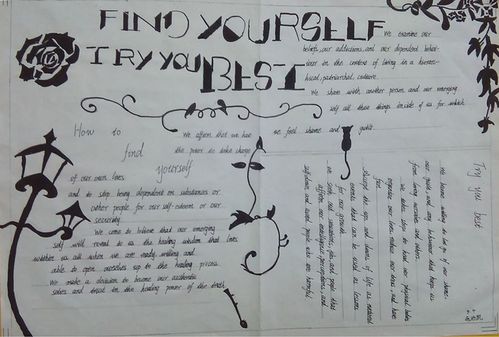 FIND YOURSELF
TRY YOU BEST
We examine our
beliefs, our addictions, and our dependent behav-
ior in the context of living in a hierar-
chical, patriarchal, culture.
We share with another person and our emerging
self all those things inside of us for which
we feel shame and guilt.
How to
find
yourself
We affirm that we have
the power to take charge
of our own lives
and to stop being dependent on substances or
other people for our self-esteem or our
security.
We come to believe that our emerging
self will reveal to us the healing wisdom that lies
within us all when we are ready willing and
able to open ourselves up to the healing process.
We make a decision to become our authentic
selves and trust in the healing power of the truth.
Try you best
We become willing to let go of our shame,
our guilt, and any behavior that keeps us
from loving ourselves and others.
We take steps to heal our physical bodies,
organize our lives, reduce our stress, and have
fun.
Accept the ups and downs of life as natural
events that can be used as lessons
for our growth.
we seek out situations, jobs, and people that
affirm our intelligence, perceptions, and
self-worth, and avoid people who are harmful.